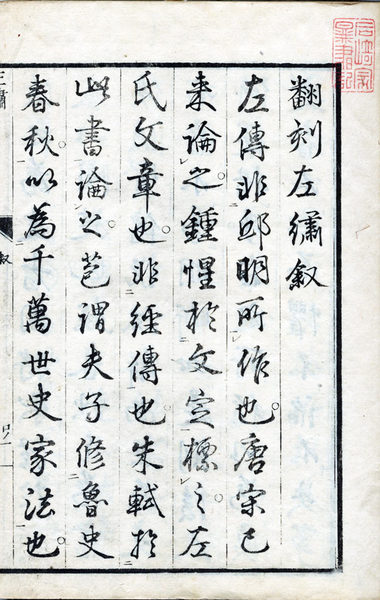 翻刻左繡叙
左傳非邱明所作也唐宋已
来論之鍾惺於文定標之左
氏文章也非經傳也朱軾於
此書論之謂夫子修魯史
春秋以為千萬世史家法也
叙